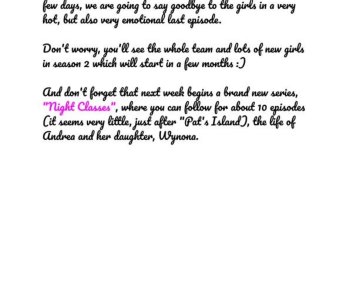 few days, we are going to say goodbye to the girls in a very
hot, but also very emotional last episode.
Don't worry, you'll see the whole team and lots of new girls
in season 2 which will start in a few months :)
And don't forget that next week begins a brand new series,
"Night Classes", where you can follow for about 10 episodes
(it seems very little, just after "Pat's Island), the life of
Andrea and her daughter, Wynona.